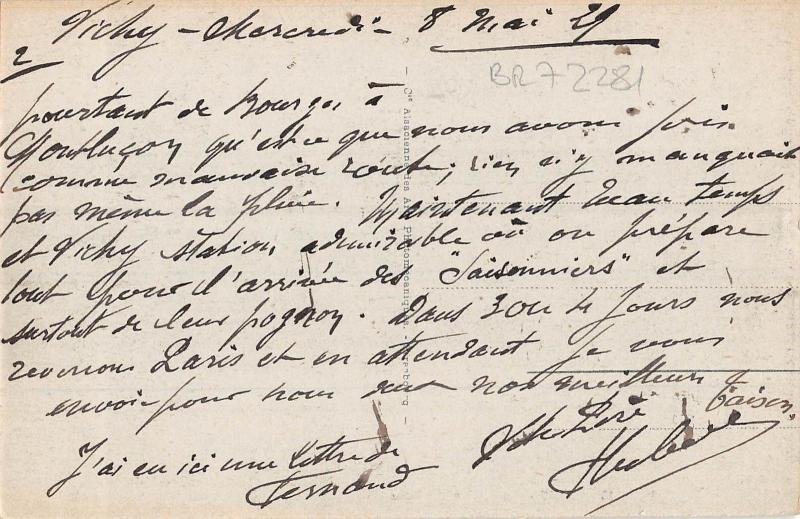 Vichy - Mercredi - 8 Mai 29
2
BR72281
pourtant de Bourges à
Montluçon qu'est ce que nous avons pris
comme mauvaise route; rien n'y manquait
pas même la pluie. Maintenant beau temps
et Vichy station admirable où on prépare
tout pour l'arrivée des "Saisonniers" et
surtout de leur pognon. Dans 3 ou 4 jours nous
reverrons Paris et en attendant je vous
envoie pour nous nos meilleurs
baisers.
J'ai eu ici une lettre de
Fernand
Cie Alsacienne des Arts Photomécaniques